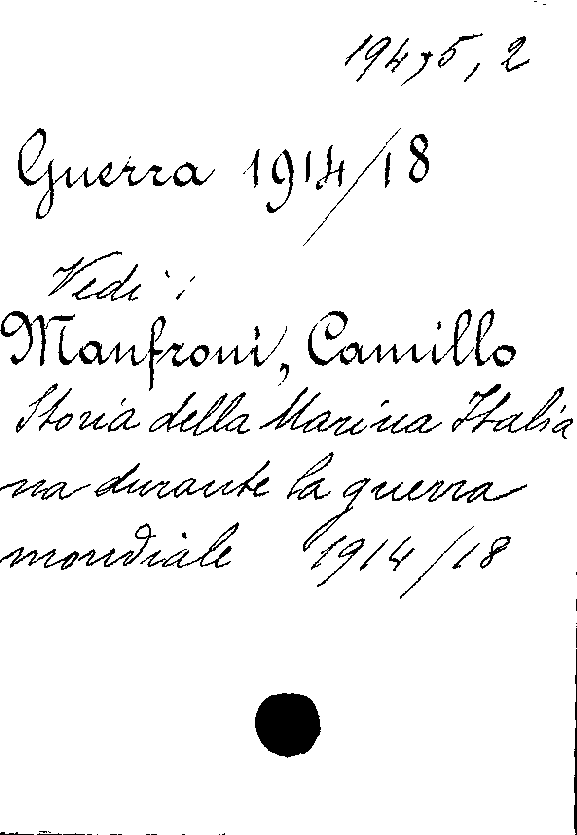 194,5, 2
Guerra 1914/18
Vedi:
Manfroni, Camillo
Storia della Marina Italia
na durante la guerra
mondiale 1914/18